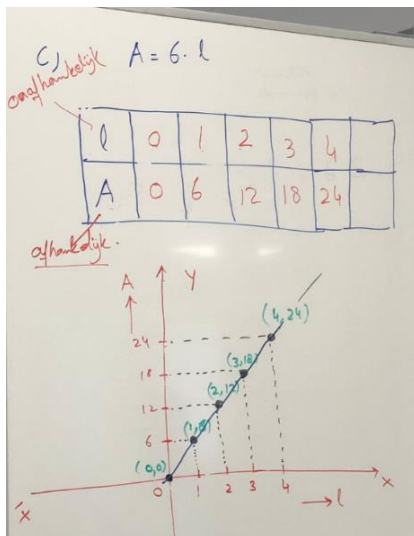 c, A = 6 · l
onafhankelijk
l 0 1 2 3 4
A 0 6 12 18 24
afhankelijk.
A Y
24 (4,24)
18 (3,18)
12 (2,12)
6 (1,6)
(0,0)
0 1 2 3 4 x
x → l